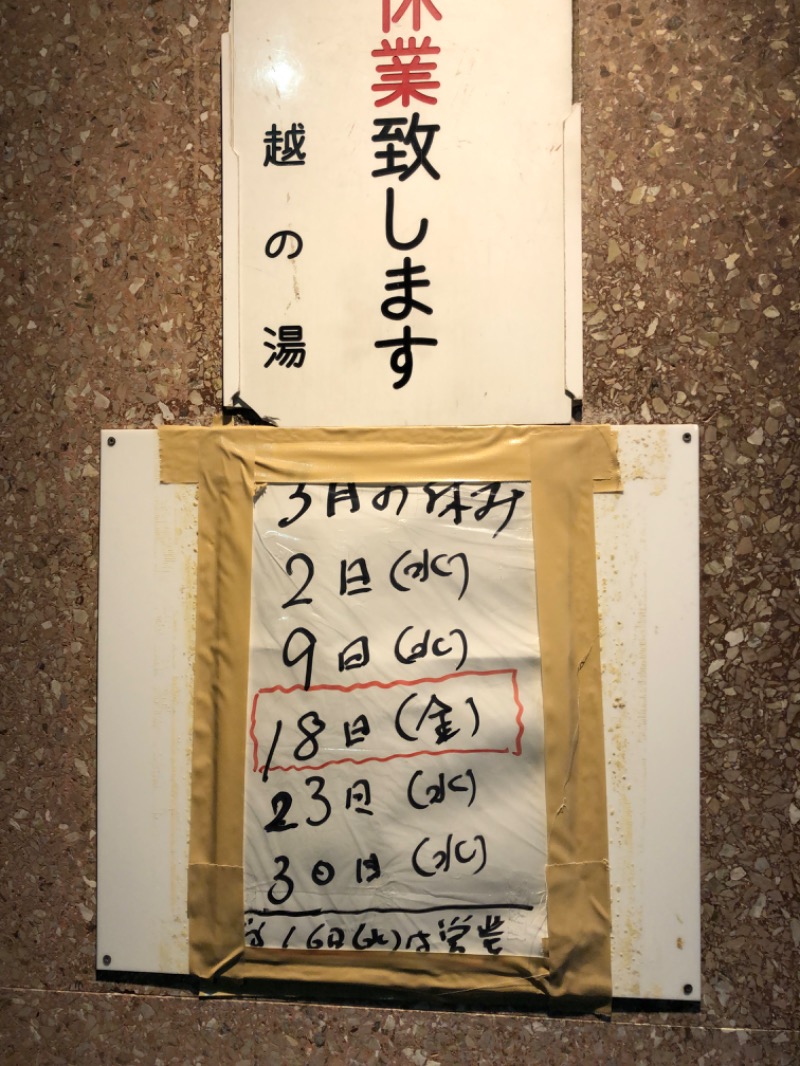 休業致します
越の湯
3月の休み
2日(水)
9日(水)
18日(金)
23日(水)
30日(水)
16日(水)は営業